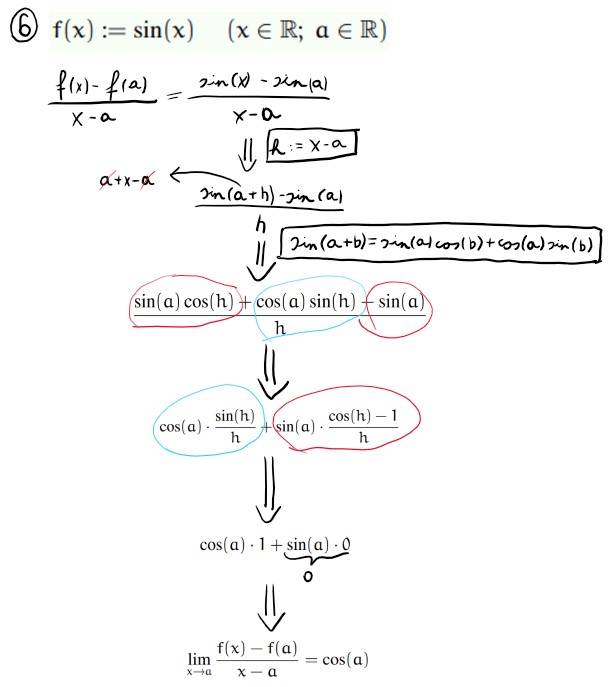 ⑥ f(x) := sin(x) (x ∈ ℝ; a ∈ ℝ)
(f(x) - f(a))/(x - a) = (sin(x) - sin(a))/(x - a)
h := x - a
a + x - a
(sin(a+h) - sin(a))/h
sin(a+b) = sin(a) cos(b) + cos(a) sin(b)
(sin(a) cos(h) + cos(a) sin(h) − sin(a))/h
cos(a) · sin(h)/h + sin(a) · (cos(h) − 1)/h
cos(a) · 1 + sin(a) · 0
0
lim x→a (f(x) − f(a))/(x − a) = cos(a)